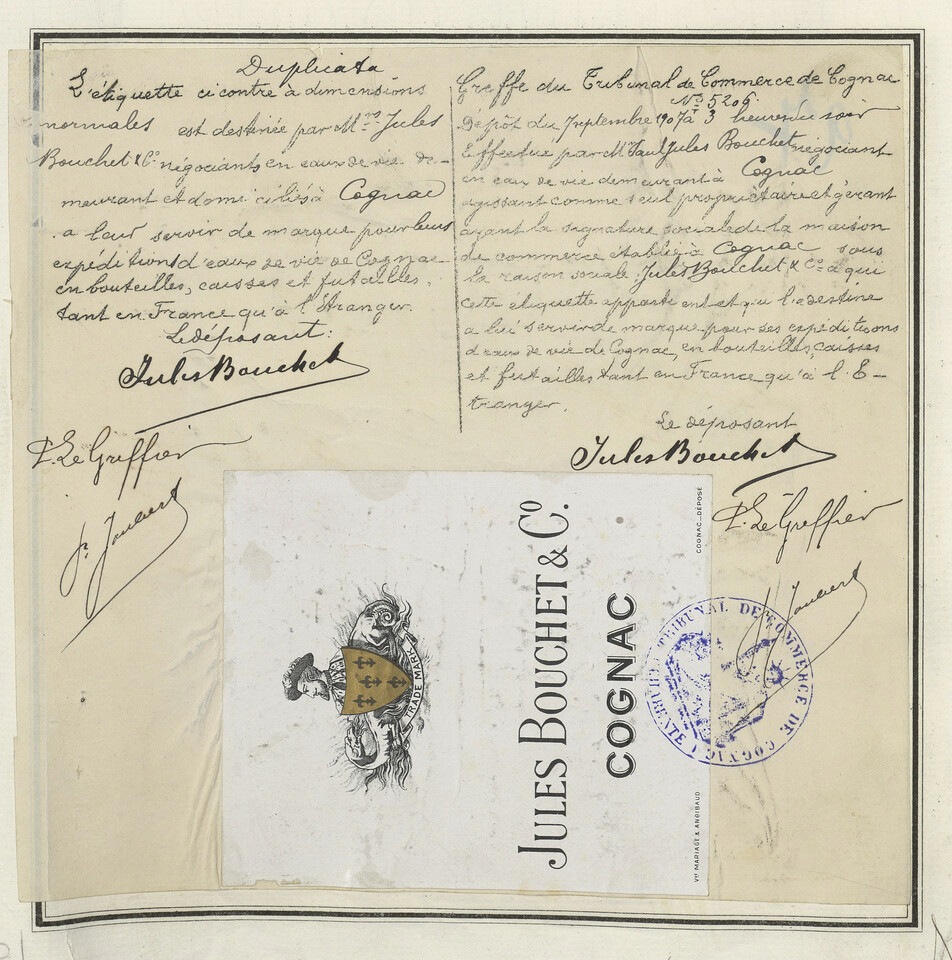 Duplicata
L'étiquette ci contre à dimensions
normales est destinée par M.rs Jules
Bouchet & Co négociants en eaux de vie de-
meurant et domiciliés à Cognac
a leur servir de marque pour leurs
expéditions d'eaux de vie de Cognac
en bouteilles, caisses et futailles,
tant en France qu'à l'Etranger.
Le déposant:
Jules Bouchet
P. Le Greffier
P. Jaubert
Greffe du Tribunal de Commerce de Cognac
No 5206.
Dépôt du 7 septembre 1907 à 3 heures du soir
Effectué par Mr Paul Jules Bouchet négociant
en eaux de vie demeurant à Cognac
agissant comme seul propriétaire et gérant
ayant la signature sociale de la maison
de commerce établie à Cognac sous
la raison sociale Jules Bouchet & Co à qui
cette étiquette appartient et qui l'a destine
a lui servir de marque pour ses expéditions
d'eaux de vie de Cognac, en bouteilles, caisses
et futailles tant en France qu'à l'E-
tranger.
Le déposant
Jules Bouchet
P. Le Greffier
Jaubert
TRADE MARK
JULES BOUCHET & Co.
COGNAC
COGNAC_DÉPOSÉ
Vve MARIAGE & ANGIBAUD
TRIBUNAL DE COMMERCE DE COGNAC (CHARENTE)